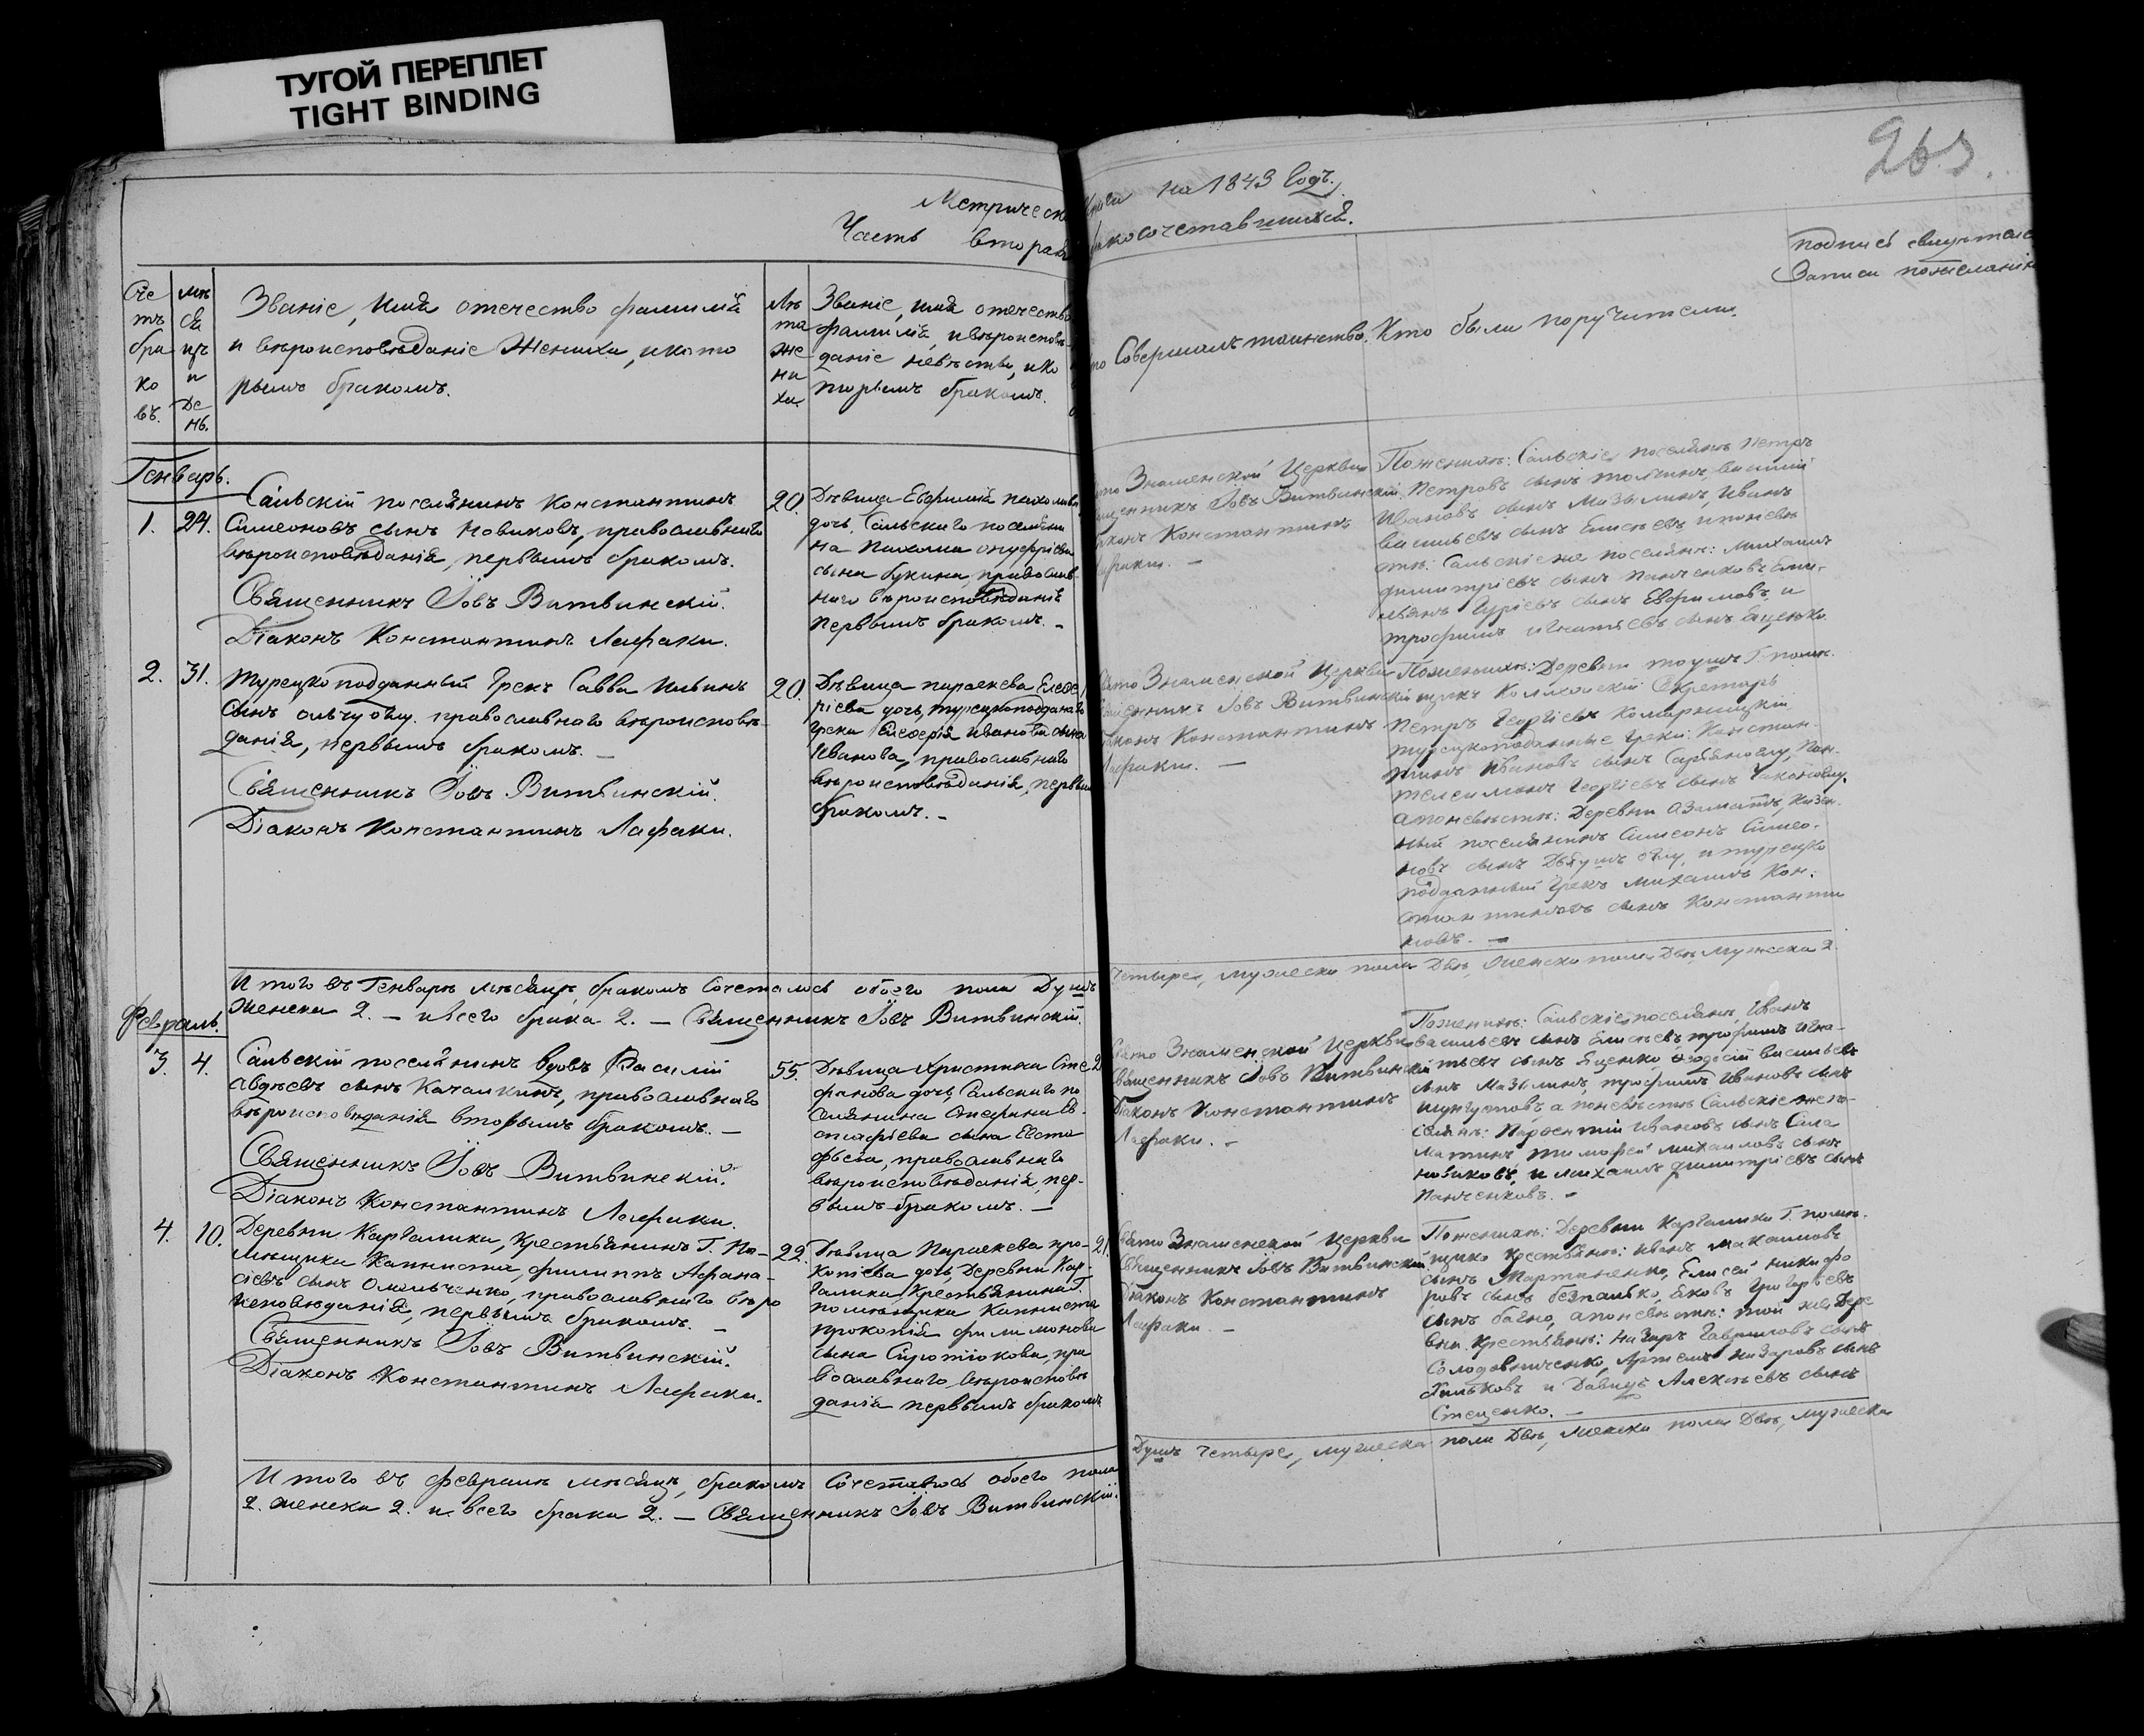 ТУГОЙ ПЕРЕПЛЕТ
TIGHT BINDING
263
Метрическ
Часть вторая
Книги на 1843 Годъ.
бракосочетавшихся.
Сче
тъ
бра
ко
въ.
мѣ
ся
цъ
и
Де
нь.
Званіе, имя отечество фамилія
и вѣроисповѣданіе Жениха, и кото
рымъ бракомъ.
Лѣ
та
же
ни
ха.
Званіе, имя отечество
фамилія, и вѣроисповѣ-
даніе невѣсты, и ко
торымъ бракомъ.
Совершалъ таинство.
Кто были поручители.
подпись свидѣтеле
Записи по желанію
Генварь.
1. 24.
Сальскій поселянинъ Константинъ
Симеоновъ сынъ Новиковъ, православнаго
вѣроисповѣданія, первымъ бракомъ.
Священникъ Іовъ Витвинскій.
Діаконъ Константинъ Лафаки.
20.
Дѣвица Евфимія пахомова
дочь, Сальскаго поселяни
на Пахома онуфріева
сына букина, православ-
наго вѣроисповѣданія
первымъ бракомъ. -
Знаменской Церкви
Священникъ Іовъ Витвинскій
Діаконъ Константинъ
Лафаки. -
По женихѣ: Сальскіе поселяне Петръ
Петровъ сынъ Василій
Ивановъ сынъ Мазылинъ, Иванъ
васильевъ сынъ Елисѣевъ, и по невѣ
стѣ: Сальскіе же поселяне: михаилъ
димитріевъ сынъ Панченковъ, Еми-
лианъ Гуріевъ сынъ Евфимовъ, и
трофимъ игнатьевъ сынъ Яценко.
2. 31.
Турецкоподданный Грекъ Савва Ильинъ
сынъ православнаго вѣроисповѣ-
данія, первымъ бракомъ. -
Священникъ Іовъ Витвинскій.
Діаконъ Константинъ Лафаки.
20.
Дѣвица параскева Елефе
ріева дочь, турецкоподданаго
грека Елеферія Иванова сына
Иванова, православнаго
вѣроисповѣданія, первымъ
бракомъ. -
Знаменской Церкви
Священникъ Іовъ Витвинскій
Діаконъ Константинъ
Лафаки. -
По женихѣ: Деревни Г. помѣ-
щикъ Секретарь
Петръ Георгіевъ Комарницкій,
турецкоподданные Греки: Констан-
тинъ Ивановъ сынъ Пан-
телеимонъ Георгіевъ сынъ
а по невѣстѣ: Деревни Азаматъ, Казен-
ный поселянинъ Симеонъ Симео-
новъ сынъ и турецко
подданный Грекъ михаилъ Кон-
стантиновъ сынъ Константи
новъ. -
Итого въ Генварѣ мѣсяцѣ, бракомъ Сочеталось обоего пола Душъ
Четыре, мужеска пола Двѣ, женска пола Двѣ, Мужеска 2.
женска 2. - и всего брака 2. - Священникъ Іовъ Витвинскій.
Февраль.
3. 4.
Сальскій поселянинъ вдовъ Василій
Авдѣевъ сынъ Качалкинъ, православнаго
вѣроисповѣданія вторымъ бракомъ. -
Священникъ Іовъ Витвинскій.
Діаконъ Константинъ Лафаки.
55.
Дѣвица Христина Сте
фанова дочь, Сальскаго по
селянина Стефана Ев-
стафіева сына Евста
фьева, православнаго
вѣроисповѣданія, пер-
вымъ бракомъ. -
Знаменской Церкви
Священникъ Іовъ Витвинскій
Діаконъ Константинъ
Лафаки. -
По женихѣ: Сальскіе поселяне, Иванъ
васильевъ сынъ Елисѣевъ, трофимъ игна-
тьевъ сынъ Яценко, Ѳеодосій васильевъ
сынъ Мазылинъ, трофимъ Ивановъ сынъ
а по невѣстѣ Сальскіе же по-
селяне: Парѳентій Ивановъ сынъ Сала
матинъ, тимофей михаиловъ сынъ
новиковъ, и михаилъ димитріевъ сынъ
Панченковъ. -
4. 10.
Деревни Каргалика, Крестьянинъ Г. По-
мѣщика Капниста, филиппъ Афана-
сіевъ сынъ Омельченко, православнаго вѣро
исповѣданія, первымъ бракомъ. -
Священникъ Іовъ Витвинскій.
Діаконъ Константинъ Лафаки.
22.
Дѣвица Параскева про-
копіева дочь, Деревни Кар-
галика Крестьянина Г.
помѣщика Капниста
прокопія филимонова
сына Сиротюкова, пра
вославнаго, вѣроисповѣ
данія первымъ бракомъ
21.
Знаменской Церкви
Священникъ Іовъ Витвинскій
Діаконъ Константинъ
Лафаки. -
По женихѣ: Деревни Каргалика Г. помѣ-
щика Крестьяне: Иванъ Максимовъ
сынъ Мартиненко, Елисей никифо
ровъ сынъ безпалько, Яковъ Григорьевъ
сынъ багно, а по невѣстѣ: той же Дере
вни Крестьяне: назаръ Гавриловъ сынъ
Солодовниченко, Артемъ назаровъ сынъ
и Давидъ Алексѣевъ сынъ
Стеценко. -
Итого въ февралѣ мѣсяцѣ, бракомъ Сочеталось обоего пола
Душъ Четыре, мужеска пола Двѣ, Женска пола Двѣ, мужеска
2. женска 2. и всего брака 2. - Священникъ Іовъ Витвинскій.